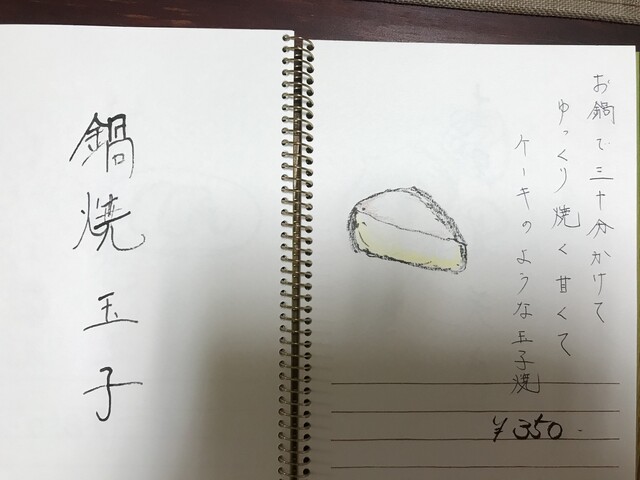 鍋焼玉子
お鍋で三十分かけて
ゆっくり焼く甘くて
ケーキのような玉子焼
¥350